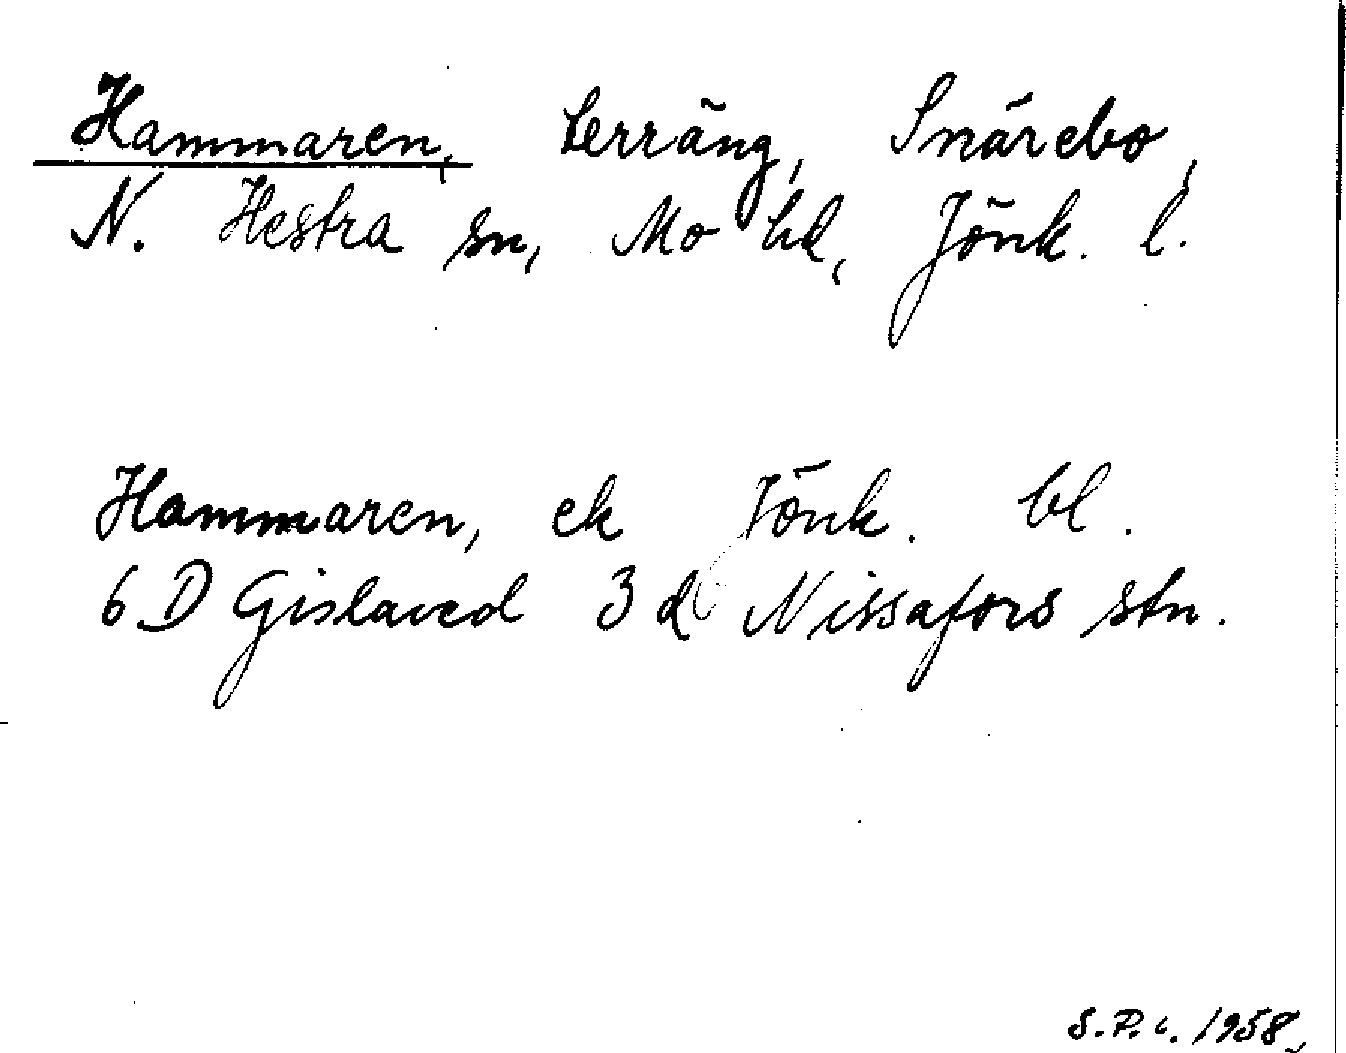 Hammaren, terräng, Snärebo,
N. Hestra sn, Mo hd, Jönk. l.
Hammaren, ek Jönk. bl.
6 D Gislaved 3 d Nissafors stn.
S.P.c. 1958